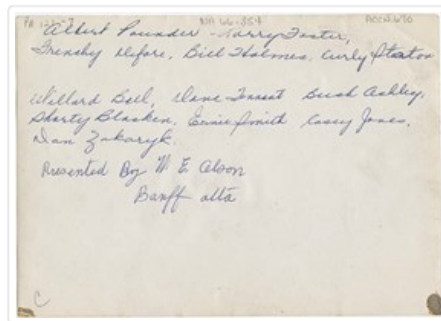 PA 121-7 NA 66-854 ACCN 690
Albert Pounder - Harry Foster,
Frenchy Defore, Bill Holmes, Curly Staton
Willard Bell, Dave Tennant Bush Ashley,
Shorty Blasken, Ernie Smith Casey Jones,
Dan Zakaryk.
Presented By W E Olson
Banff alta
C